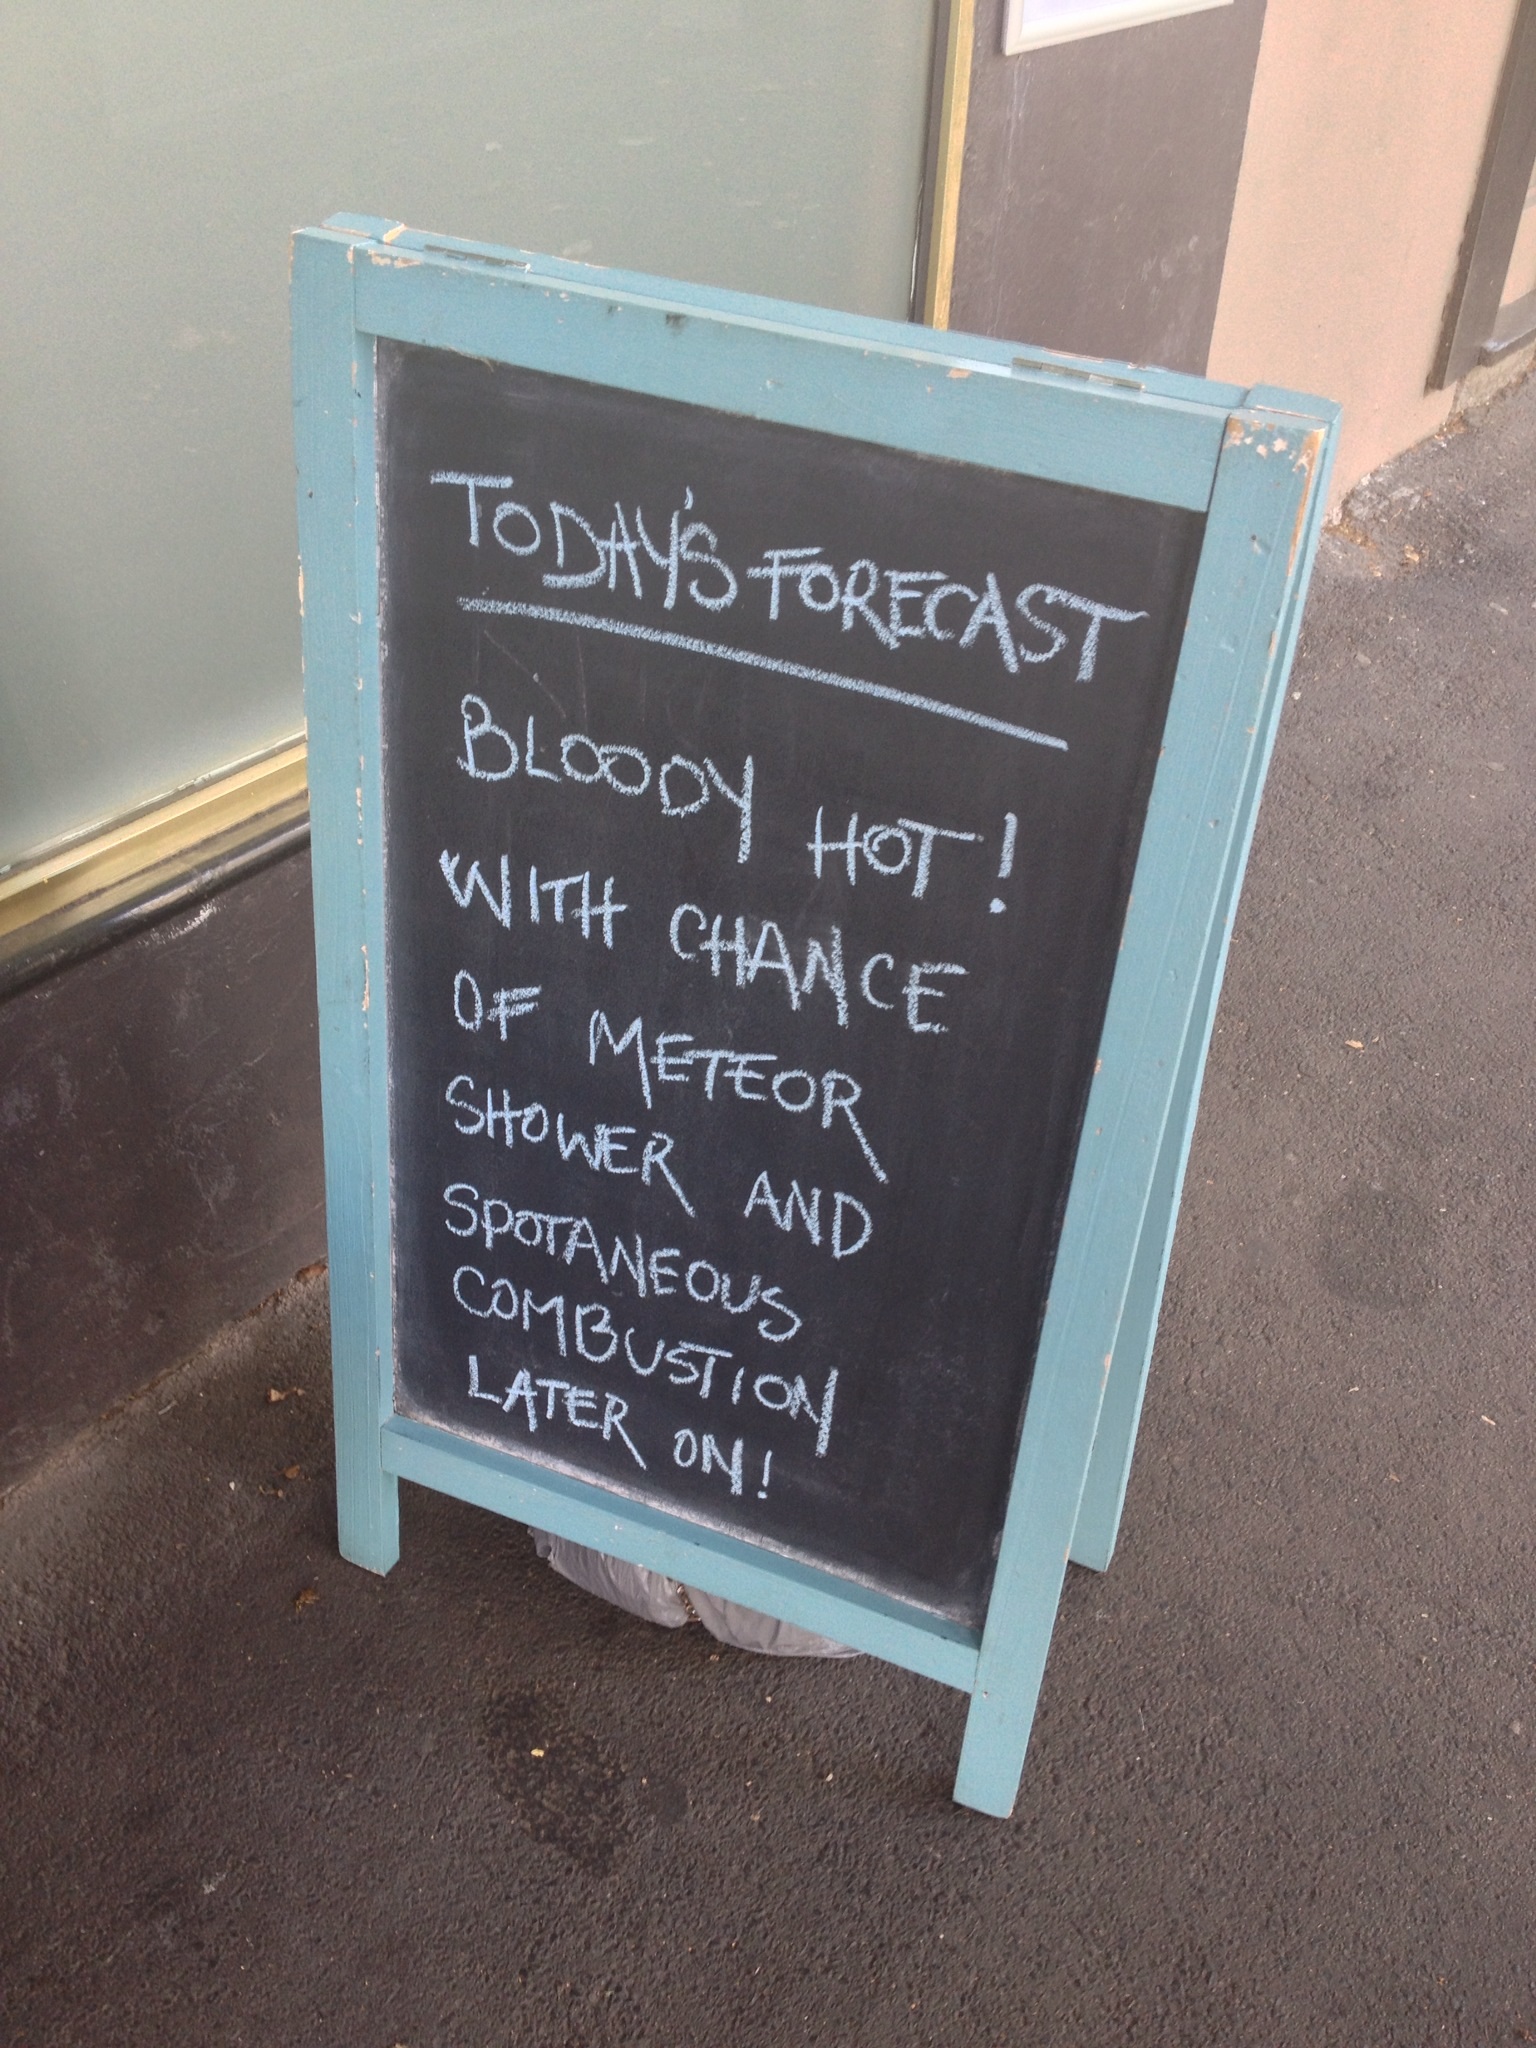 TODAY'S FORECAST
BLOODY HOT!
WITH CHANCE
OF METEOR
SHOWER AND
SPOTANEOUS
COMBUSTION
LATER ON!